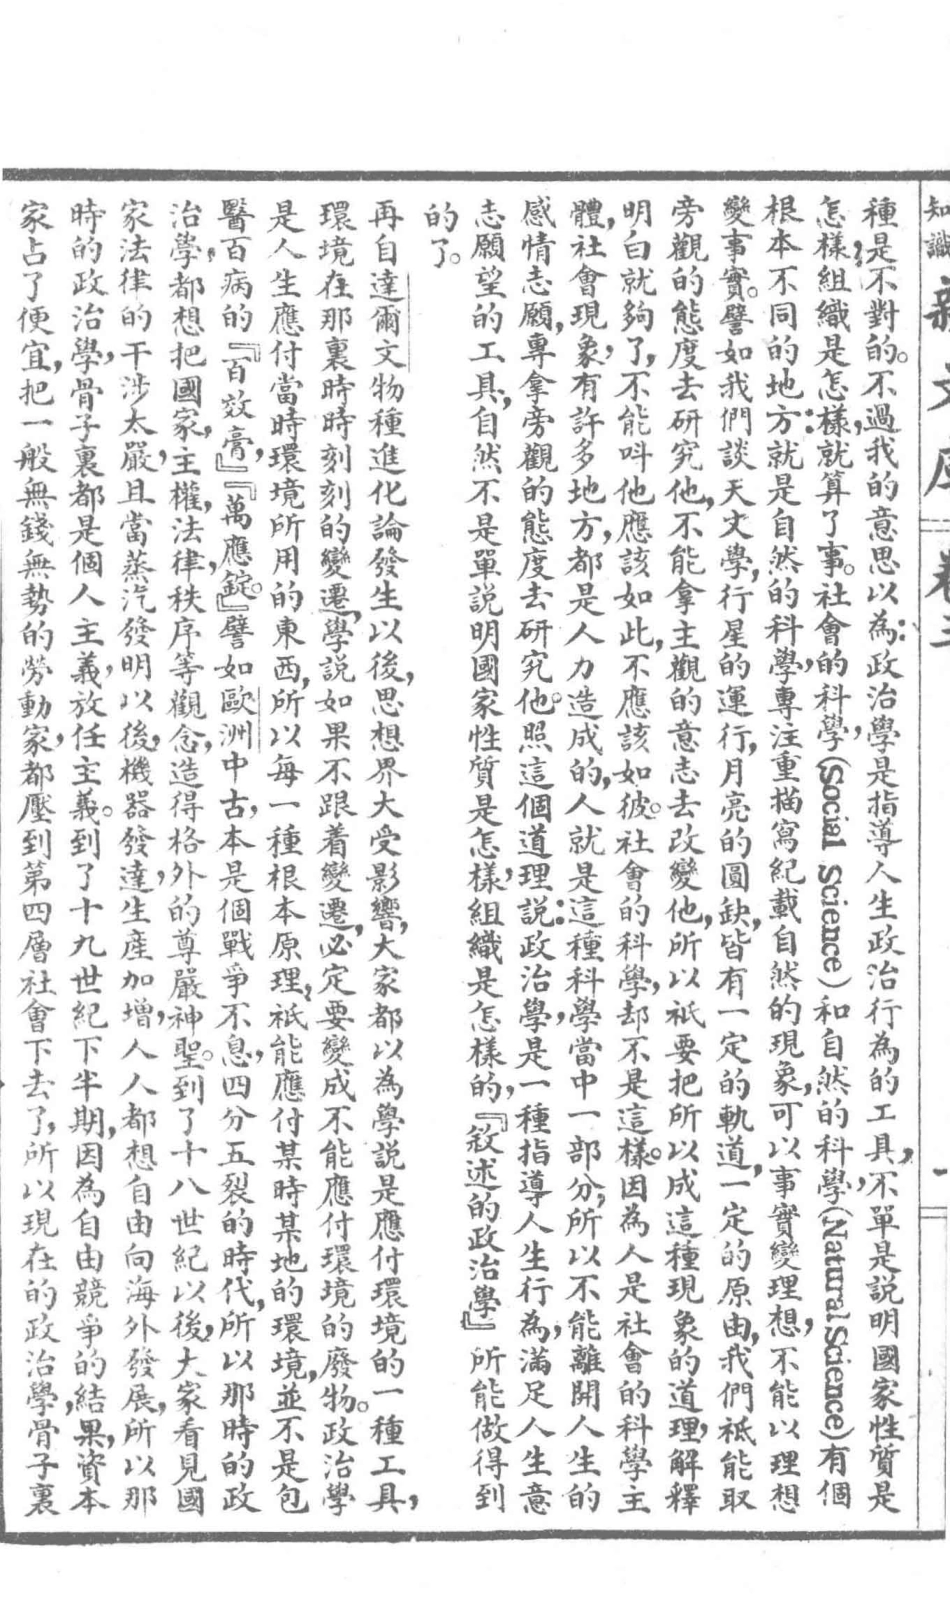 知識新文庫 卷三 一
種是不對的。不過我的意思以為:政治學是指導人生政治行為的工具,不單是說明國家性質是
怎樣,組織是怎樣,就算了事。社會的科學,(Social Science)和自然的科學,(Natural Science)有個
根本不同的地方:就是自然的科學,專注重描寫紀載自然的現象,可以事實變理想,不能以理想
變事實。譬如我們談天文學,行星的運行,月亮的圓缺,皆有一定的軌道,一定的原由,我們祗能取
旁觀的態度去研究他,不能拿主觀的意志去改變他,所以祗要把所以成這種現象的道理,解釋
明白就夠了,不能呌他應該如此,不應該如彼。社會的科學,却不是這樣。因為人是社會的科學主
體,社會現象,有許多地方,都是人力造成的,人就是這種科學當中一部分,所以不能離開人生的
感情志願,專拿旁觀的態度去研究他。照這個道理說:政治學,是一種指導人生行為,滿足人生意
志願望的工具,自然不是單說明國家性質是怎樣,組織是怎樣的,『敘述的政治學』所能做得到
的了。
再自達爾文物種進化論發生以後,思想界大受影響,大家都以為學說是應付環境的一種工具,
環境在那裏時時刻刻的變遷,學說如果不跟着變遷,必定要變成不能應付環境的廢物。政治學
是人生應付當時環境所用的東西,所以每一種根本原理,祗能應付某時某地的環境,並不是包
醫百病的『百效膏,』『萬應錠。』譬如歐洲中古,本是個戰爭不息,四分五裂的時代,所以那時的政
治學,都想把國家,主權,法律,秩序等觀念,造得格外的尊嚴,神聖。到了十八世紀以後,大家看見國
家法律的干涉太嚴,且當蒸汽發明以後,機器發達,生產加增,人人都想自由向海外發展,所以那
時的政治學,骨子裏都是個人主義,放任主義。到了十九世紀下半期,因為自由競爭的結果,資本
家占了便宜,把一般無錢無勢的勞動家,都壓到第四層社會下去了,所以現在的政治學,骨子裏